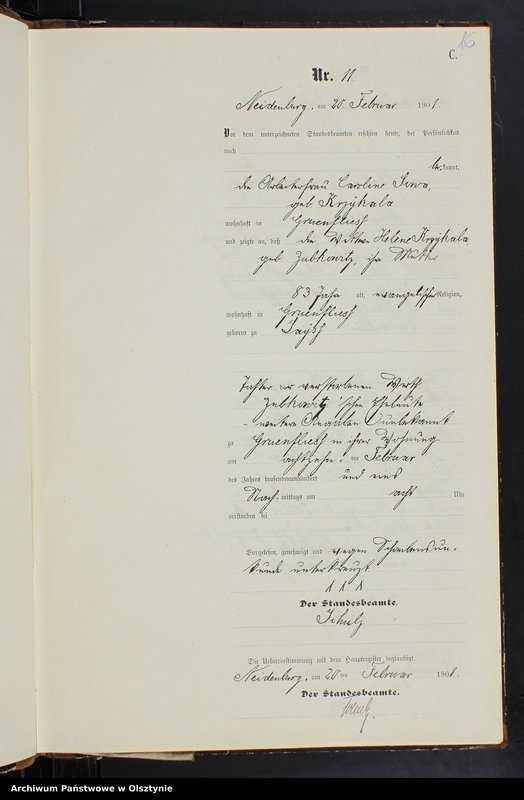 16
C.
Nr. 11.
Neidenburg, am 20. Februar 1901.
Vor dem unterzeichneten Standesbeamten erschien heute, der Persönlichkeit
nach
bekannt,
die Arbeiterfrau Caroline
geb. Krzykala
wohnhaft in Gruenfliess
und zeigte an, daß die Wittwe Helene Krzykala
geb. Zubkowitz, ihre Mutter
83 Jahre alt, evangelischer Religion,
wohnhaft in Gruenfliess
geboren zu
Tochter der verstorbenen Wirth
Zubkowitz'schen Eheleute
- weitere Angaben unbekannt
zu Gruenfliess in ihrer Wohnung
am achtzehnten Februar
des Jahres tausendneunhundert und eins
Nachmittags um acht Uhr
verstorben sei
Vorgelesen, genehmigt und wegen Schreibensun-
kunde unterkreuzt
Der Standesbeamte.
Schulz
Die Uebereinstimmung mit dem Hauptregister beglaubigt.
Neidenburg, am 20ten Februar 1901.
Der Standesbeamte.
Schulz.
Archiwum Państwowe w Olsztynie